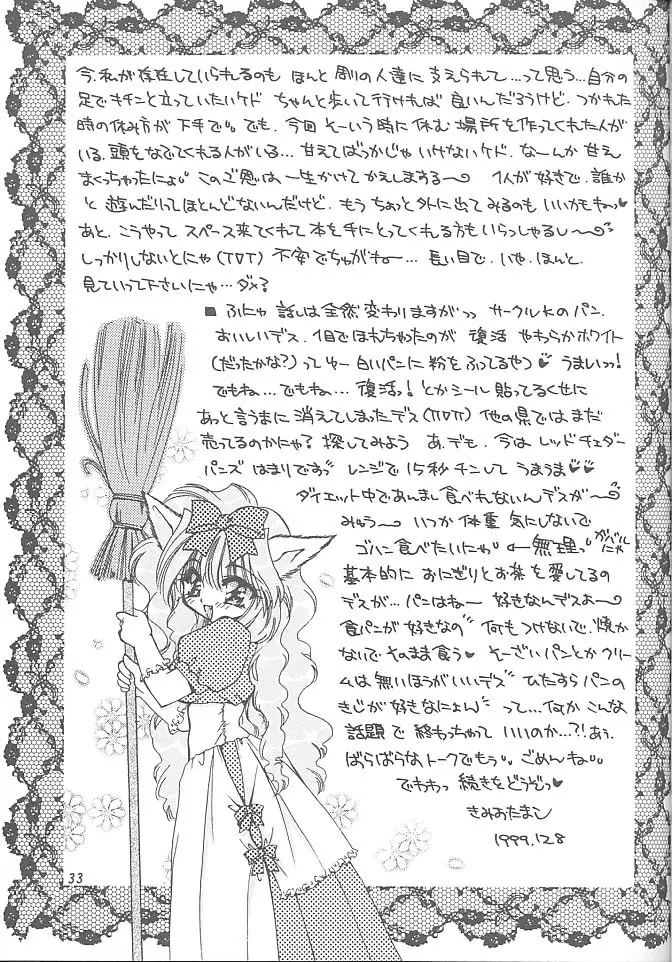 今、私が存在していられるのも ほんと 周りの人達に 支えられて…って思う…自分の
足でキチンと立っていたいケド ちゃんと歩いて行ければ 良いんだろうけど、つかれた
時の休み方が 下手で。でも、今回 そーいう時に休む 場所を作ってくれた人が
いる、頭をなでてくれる人がいる…甘えてばっかじゃ いけないケド、なーんか 甘え
まくっちゃったにょ。このご恩は一生かけて かえしまする〜 1人が好きで、誰か
と 遊んだりってほとんどないんだけど、もう ちょっと外に出てみるのも いいかもねっ♥
あと、こうやって スペース来てくれて 本を手にとってくれる方も いらっしゃるし〜
しっかりしないとにゃ(TДT) 不安でちゅがねー… 長い目で、いや、ほんと、
見ていって下さいにゃ…ダメ?
■ ふにゃ 話しは全然変わりますがっ サークルKのパン、
おいしいデス、1目でほれちゃったのが 復活 やわらかホワイト
(だったかな?)ってゆー 白いパンに 粉をふってるやつ♥ うまいっ!
でもね…でもね… 復活!とかシール貼ってるくせに
あっと言うまに 消えてしまったデス(TДT) 他の県では、まだ
売ってるのかにゃ? 探してみよう あ、でも、今は レッドチェダー
バーンズ はまりですっ レンジで 15秒チンして うまうま♥♥
ダイエット中であんまし食べれないんデスが〜
みゅう〜 いつか 体重 気にしないで
ゴハン食べたいにゃ ←無理っ ガバルにゃ
基本的に おにぎりとお茶を愛してるの
デスが…パンはねー 好きなんデスよ〜
食パンが好きなの 何もつけないで、焼か
ないで そのまま食う そーざいパンとか クリー
ムは無いほうがいいデス ひたすら パンの
きじが好きなにょん って…何か こんな
話題 で 終わっちゃって いいのか…?!あぅ
ばらばらな、トークでもう。ごめんね。
でわわっ 続きをどうぞっ♥
きみおたまこ
1999.12.8
33